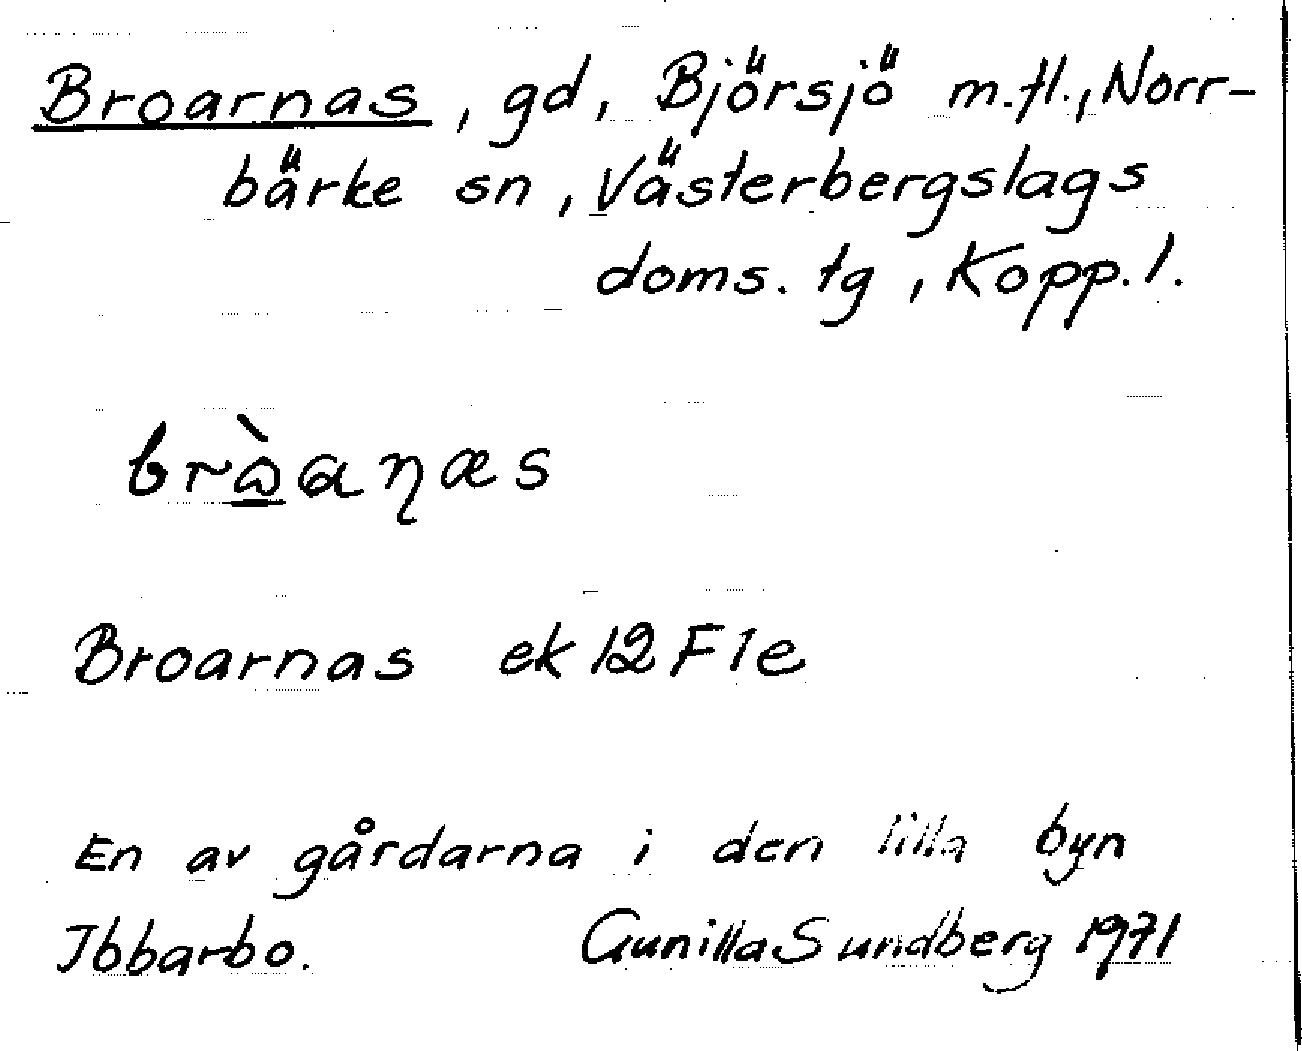 Broarnas, gd, Björsjö m.fl., Norr-
bärke sn, Västerbergslags
doms. tg, Kopp. l.
bròɑɳæs
Broarnas ek 12F1e
En av gårdarna i den lilla byn
Ibbarbo. Gunilla Sundberg 1971